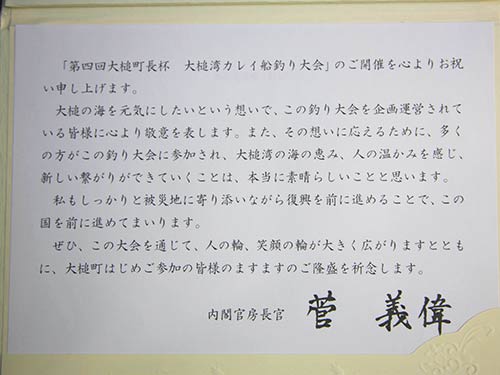 「第四回大槌町長杯　大槌湾カレイ船釣り大会」のご開催を心よりお祝
い申し上げます。
大槌の海を元気にしたいという想いで、この釣り大会を企画運営されて
いる皆様に心より敬意を表します。また、その想いに応えるために、多く
の方がこの釣り大会に参加され、大槌湾の海の恵み、人の温かみを感じ、
新しい繋がりができていくことは、本当に素晴らしいことと思います。
私もしっかりと被災地に寄り添いながら復興を前に進めることで、この
国を前に進めてまいります。
ぜひ、この大会を通じて、人の輪、笑顔の輪が大きく広がりますととも
に、大槌町はじめご参加の皆様のますますのご隆盛を祈念します。
内閣官房長官　菅　義偉